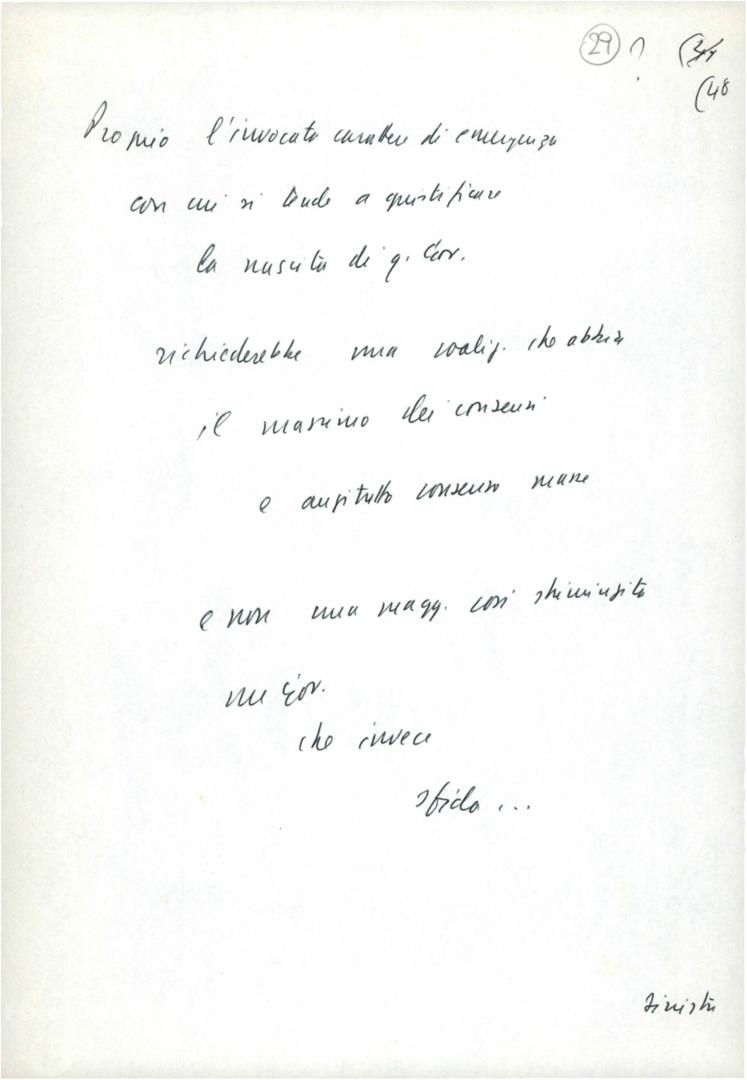 29 ? (34
(48
Proprio l'invocato carattere di emergenza
con cui si tende a giustificare
la nascita di q. Gov.
richiederebbe una coaliz. che abbia
il massimo dei consensi
e anzitutto consenso
e non una magg. così striminzita
un Gov.
che invece
sfida ...